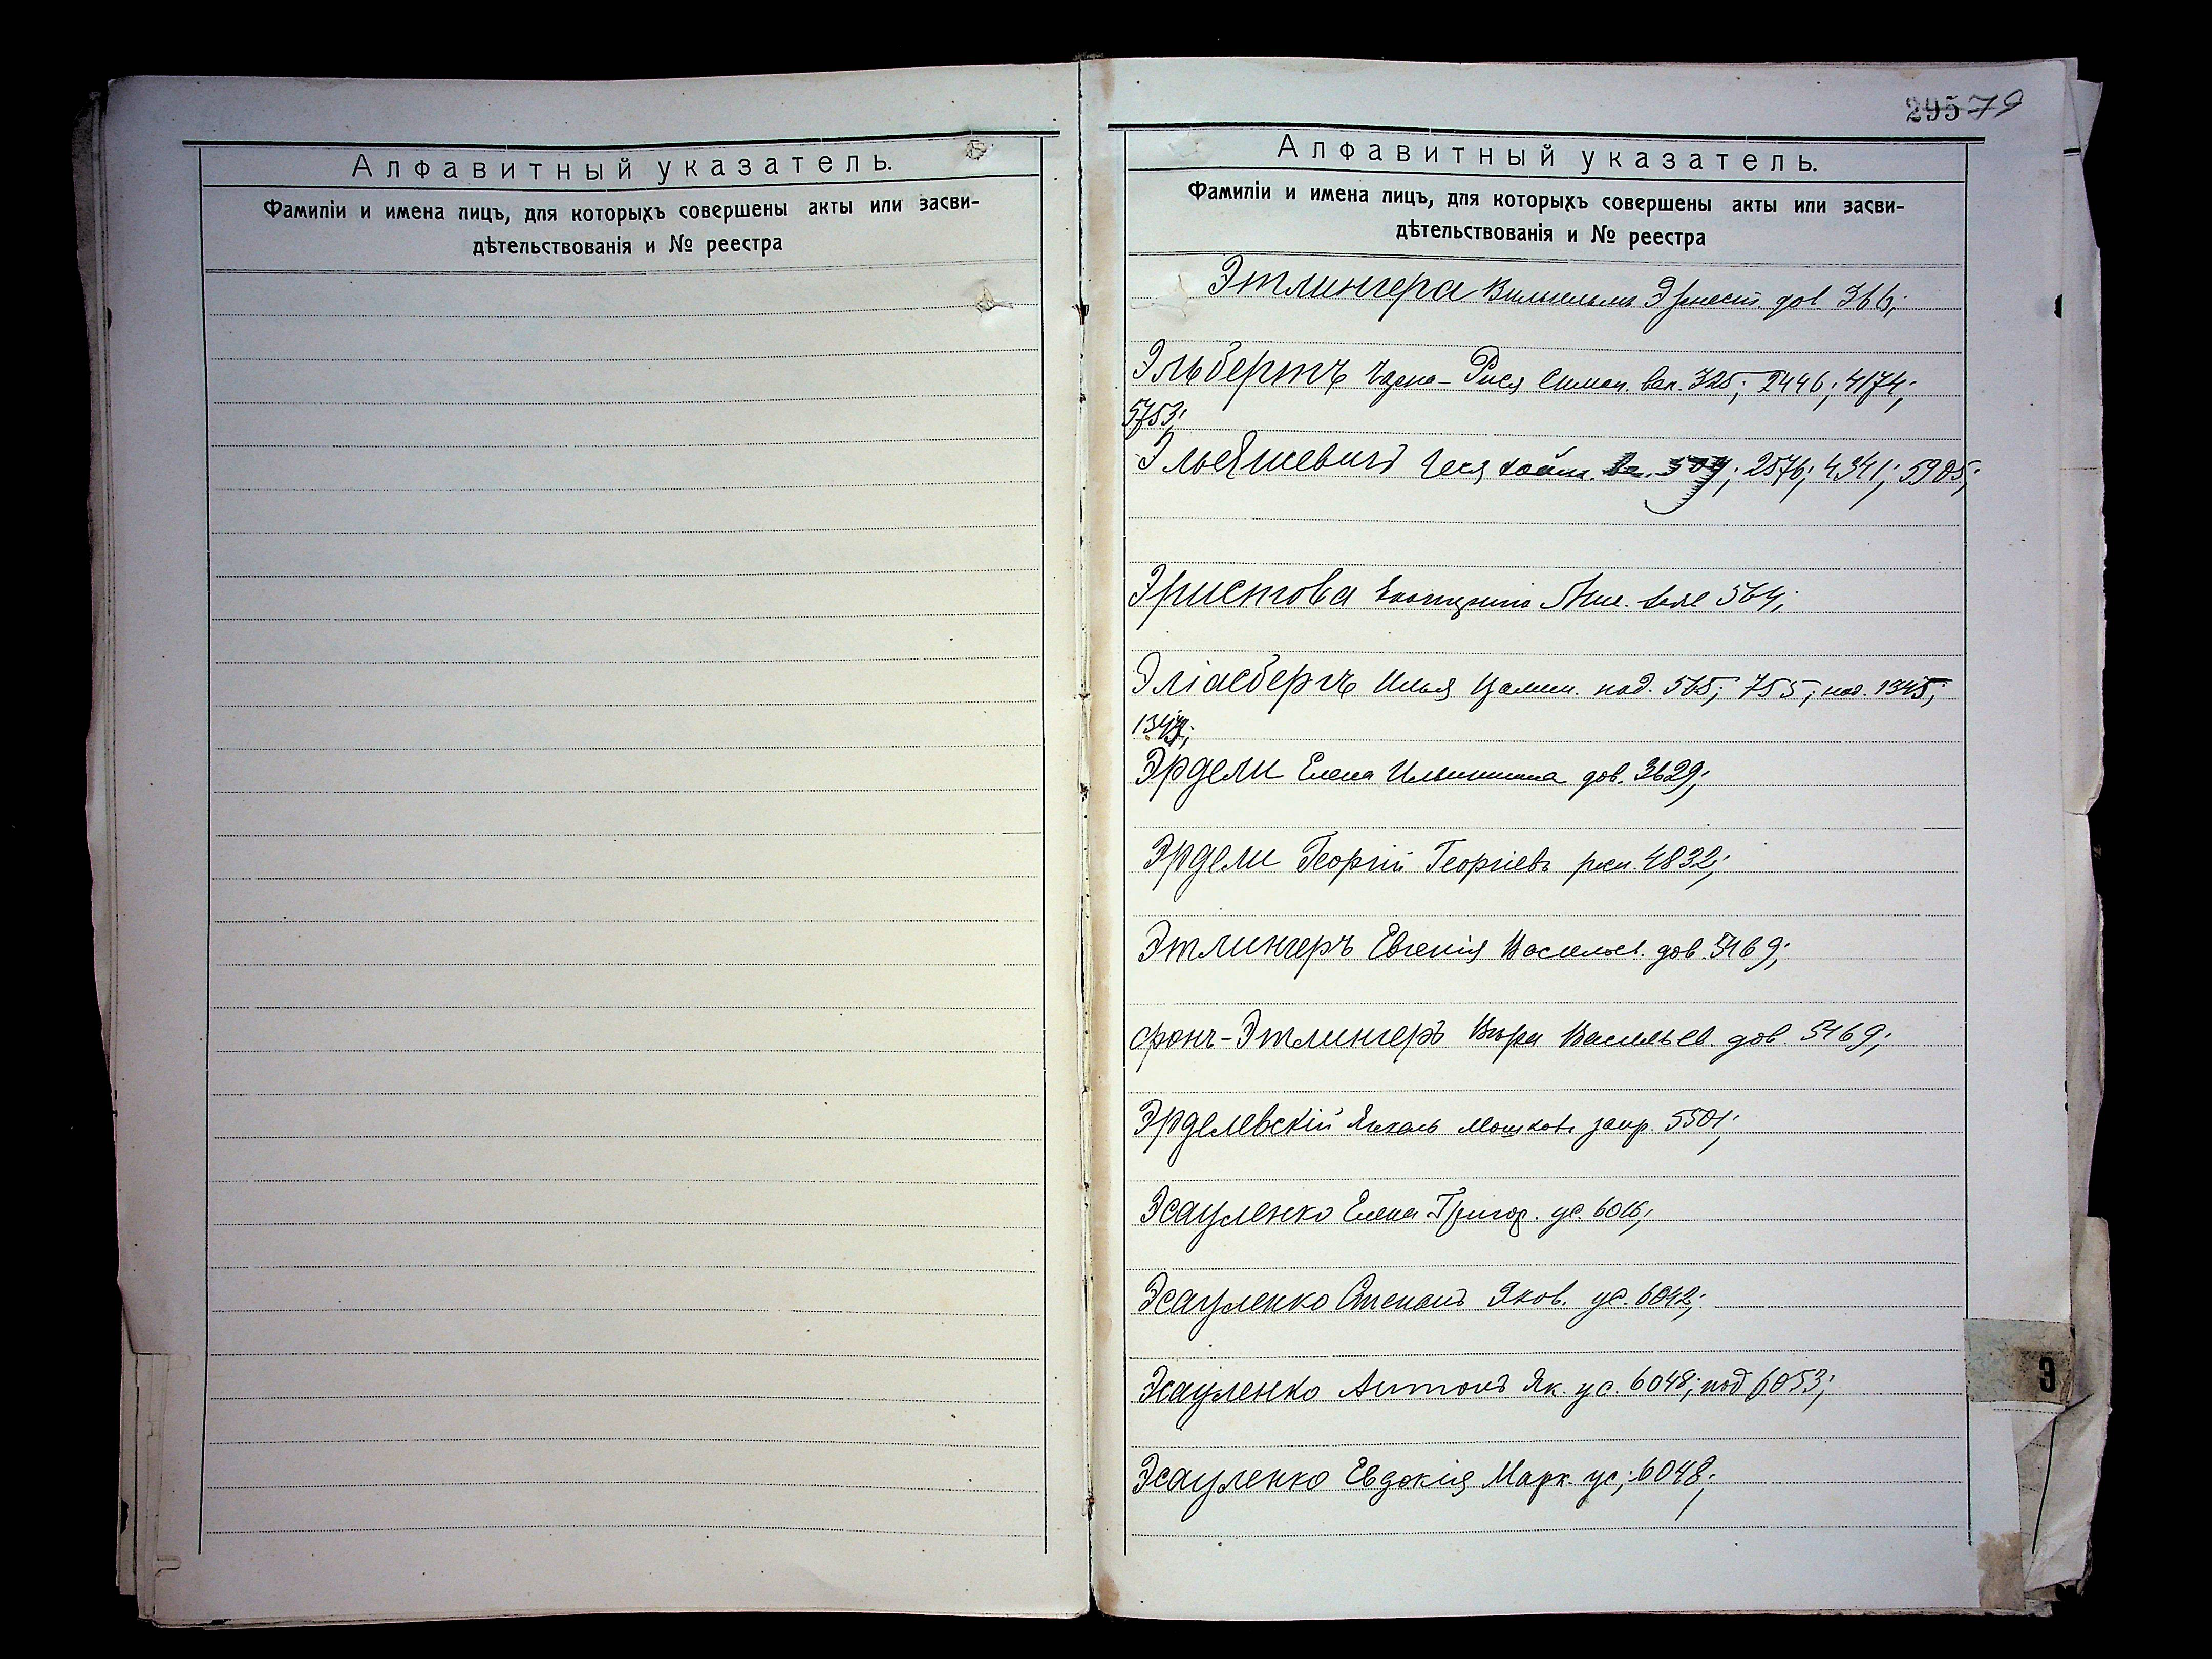 Алфавитный указатель.
Фамиліи и имена лицъ, для которыхъ совершены акты или засви-
дѣтельствованія и № реестра
29579
Алфавитный указатель.
Фамиліи и имена лицъ, для которыхъ совершены акты или засви-
дѣтельствованія и № реестра
Этлингера Вильгельма Эрнест. дов. 366;
Эльбертъ Рися Симон. век. 325; 2446; 4174;
5753;
Эльяшевичъ Хайм. 2576; 4341; 5905;
Эристова Екатерина 564;
Эліасбергъ Илья под. 565; 755; под. 1345;
1347;
Эрдели Елена Ильинишна дов. 3629;
Эрдели Георгій Георгіевъ росп. 4832;
Этлингеръ Евгенія Васильев. дов. 5469;
фонъ-Этлингеръ Вѣра Васильев. дов 5469;
Эрделевскій Мошковъ запр. 5501;
Эсауленко Елена Григор. ус. 6016;
Эсауленко Степанъ Яков. ус. 6042;
Эсауленко Антонъ Як. ус. 6048; под 6053;
Эсауленко Евдокія Марк. ус; 6048;
Э